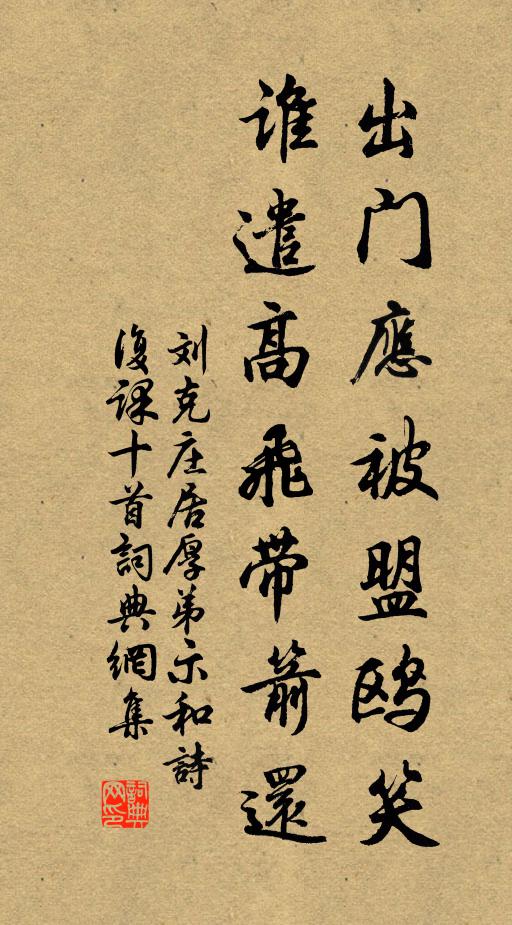 出门應被盟鸥笑
谁遣高飛带箭還
刘克庄居厚弟示和詩
復课十首詞典網集
詞典
网印